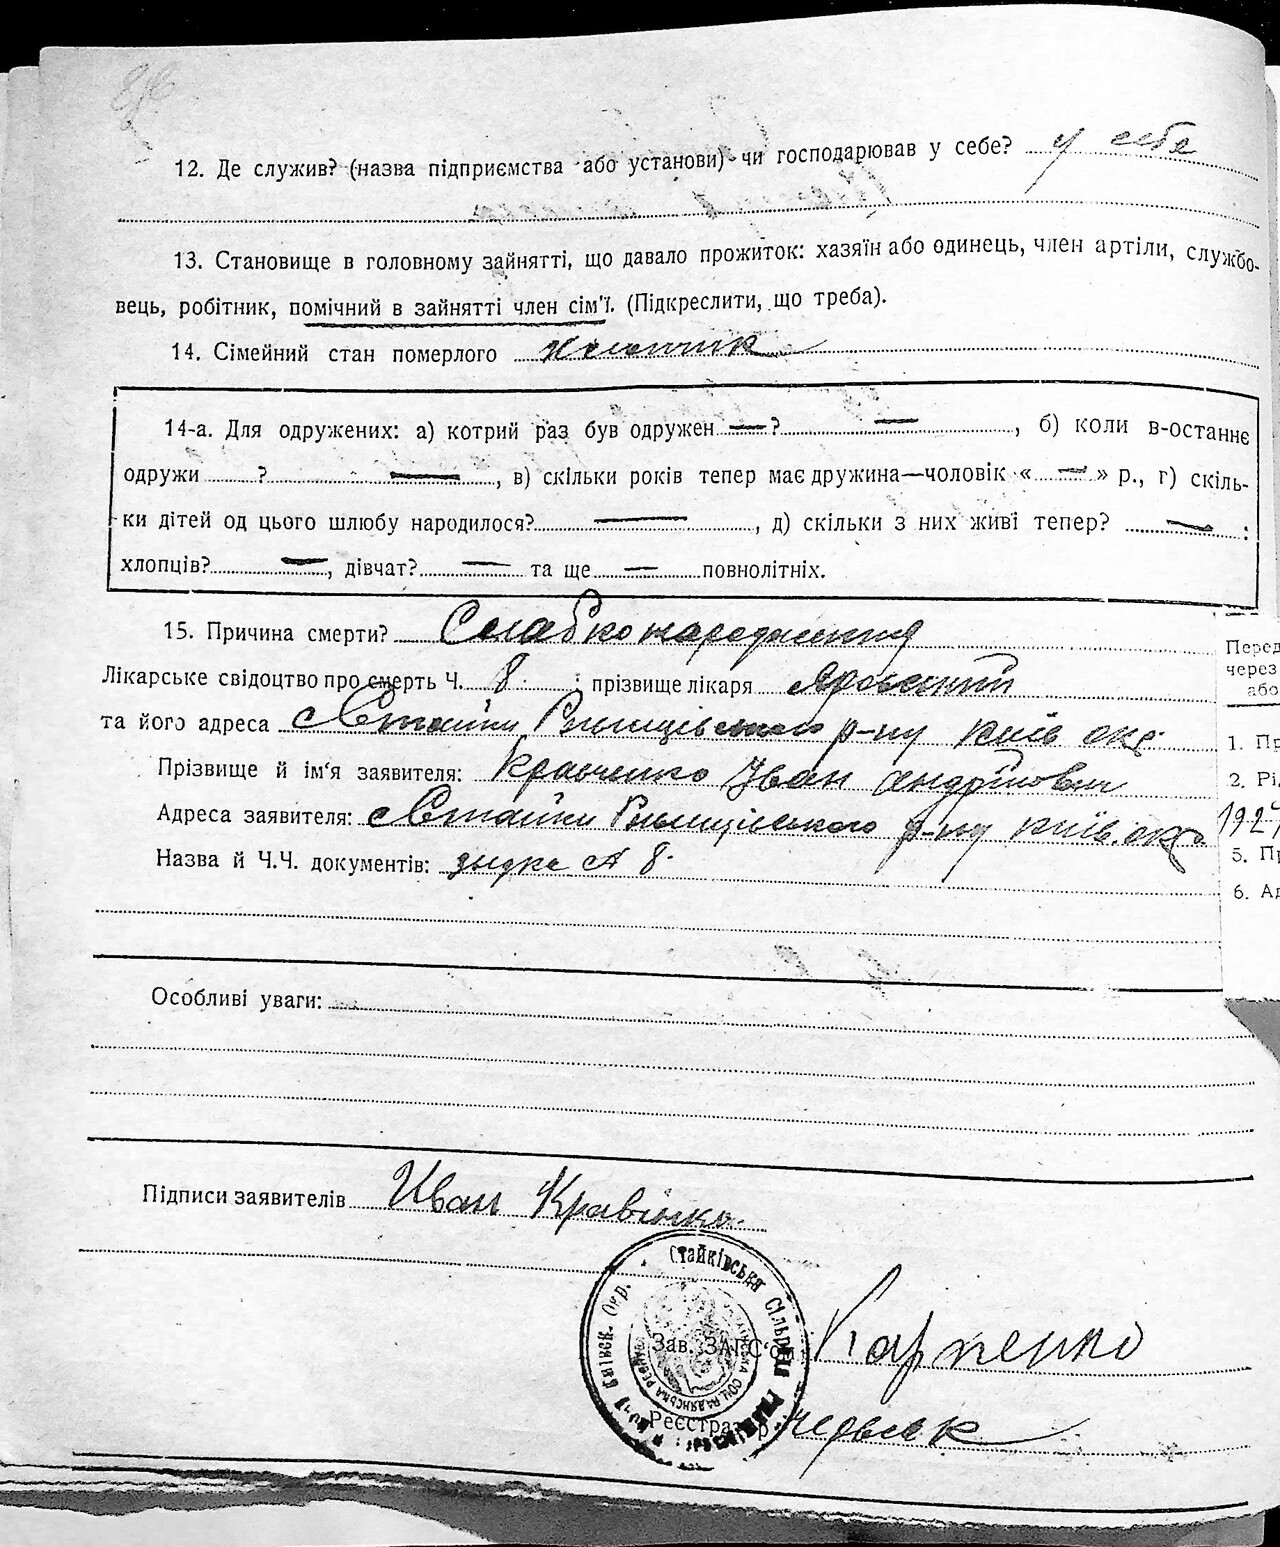 12. Де служив? (назва підприємства або установи) чи господарював у себе? у себе
13. Становище в головному зайнятті, що давало прожиток: хазяїн або одинець, член артіли, службо-
вець, робітник, помічний в зайнятті член сім'ї. (Підкреслити, що треба).
14. Сімейний стан померлого
14-а. Для одружених: а) котрий раз був одружен — ? —, б) коли в-останнє
одружи ? —, в) скільки років тепер має дружина—чоловік « — » р., г) скіль-
ки дітей од цього шлюбу народилося? —, д) скільки з них живі тепер? — :
хлопців? —, дівчат? — та ще — повнолітніх.
15. Причина смерти? Слабконародження
Лікарське свідоцтво про смерть Ч. 8. ; прізвище лікаря
та його адреса с Стайки Ржищівського р-ну Київ окр.
Прізвище й ім'я заявителя: Кравченко Іван Андрійович
Адреса заявителя: с Стайки Ржищівського р-ну Київ. окр.
Назва й Ч.Ч. документів: 8.
Особливі уваги:
Підписи заявителів Иван Кравінко.
Стайківська Сільрада Київськ. Окр.
Зав. ЗАГС'ом Карпенко
Реєстратор Червяк
Перед
через
або
1. Пр
2. Рі
192
5. Пр
6. Ад